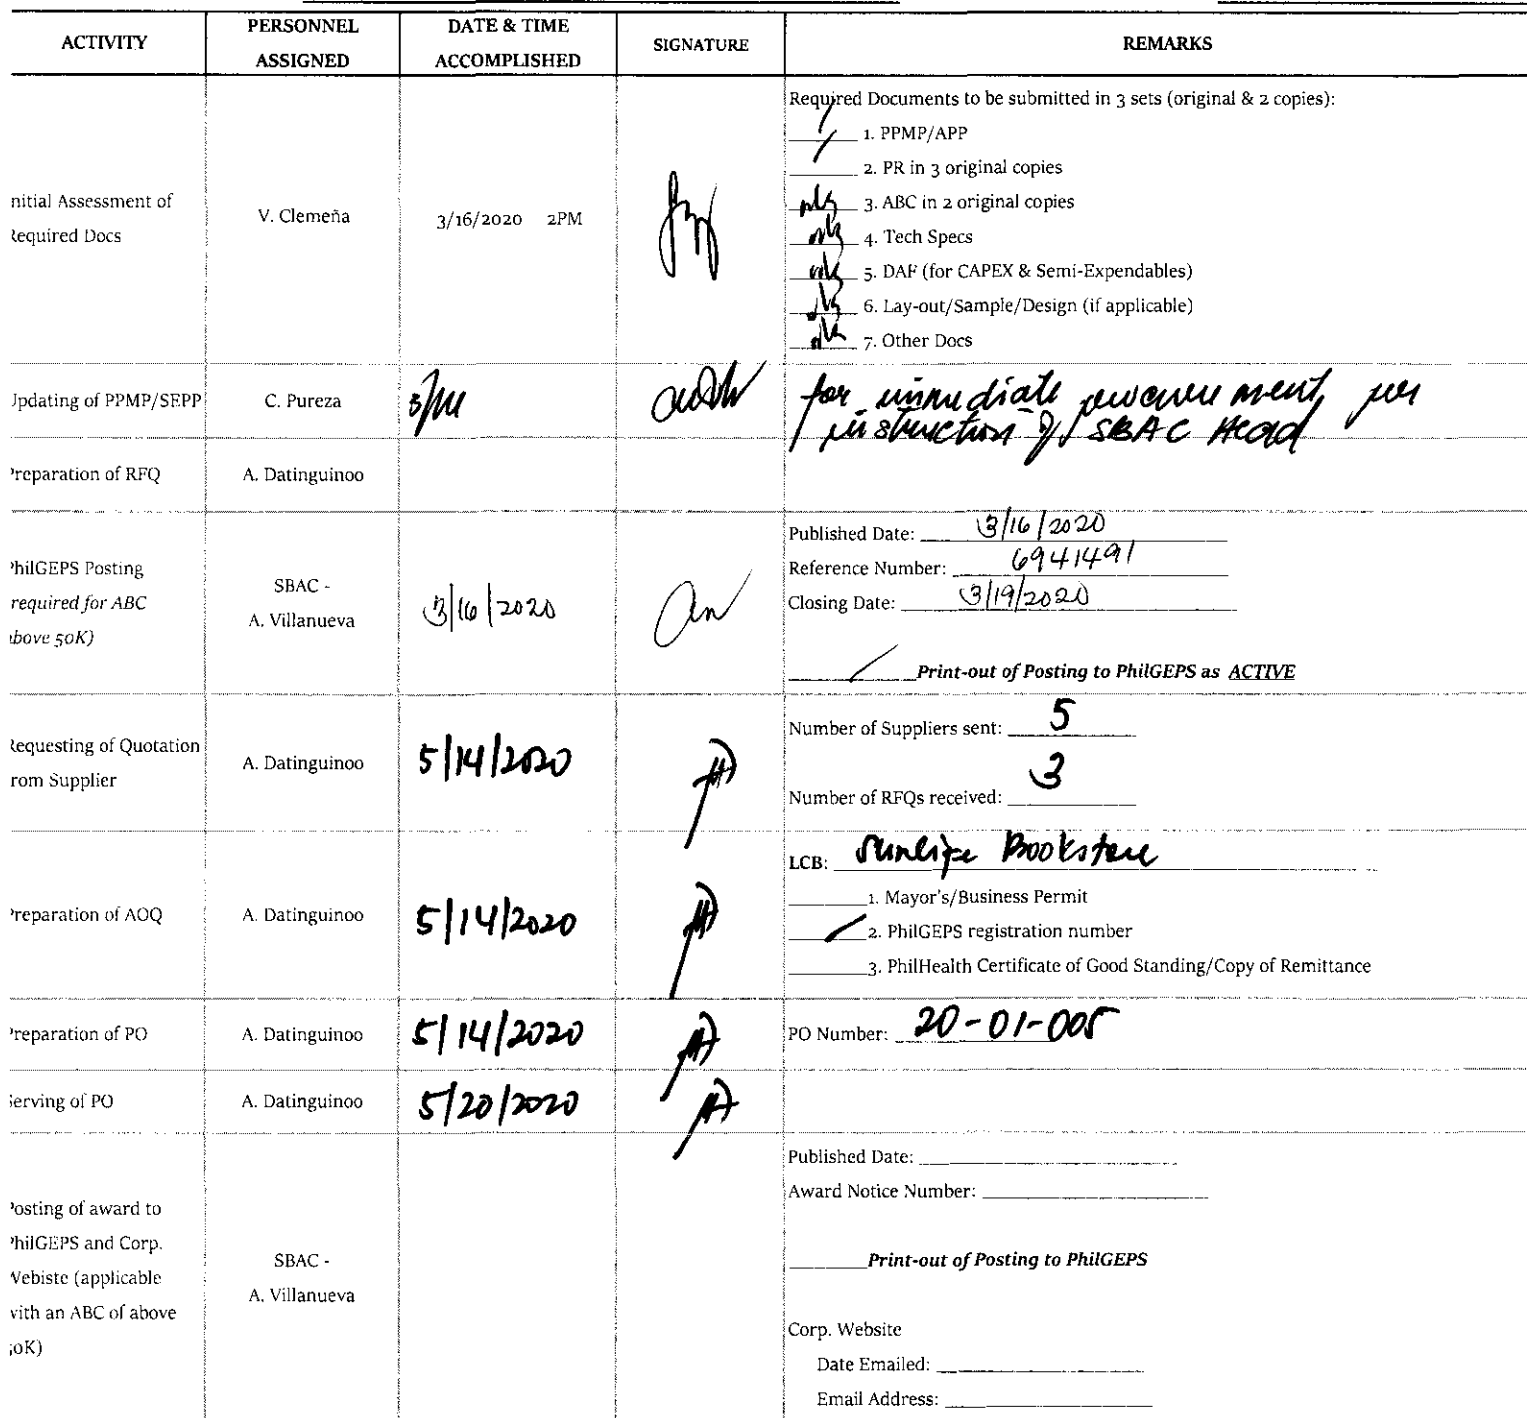 ACTIVITY
PERSONNEL
ASSIGNED
DATE & TIME
ACCOMPLISHED
SIGNATURE
REMARKS
nitial Assessment of
Required Docs
V. Clemeña
3/16/2020 2PM
Required Documents to be submitted in 3 sets (original & 2 copies):
1. PPMP/APP
2. PR in 3 original copies
3. ABC in 2 original copies
4. Tech Specs
5. DAF (for CAPEX & Semi-Expendables)
6. Lay-out/Sample/Design (if applicable)
7. Other Docs
Updating of PPMP/SEPP
C. Pureza
for immediate procurement per
instruction of SBAC Head
Preparation of RFQ
A. Datinguinoo
PhilGEPS Posting
required for ABC
above 50K)
SBAC -
A. Villanueva
3/16/2020
Published Date: 3/16/2020
Reference Number: 6941491
Closing Date: 3/19/2020
Print-out of Posting to PhilGEPS as ACTIVE
Requesting of Quotation
rom Supplier
A. Datinguinoo
5/14/2020
Number of Suppliers sent: 5
Number of RFQs received: 3
Preparation of AOQ
A. Datinguinoo
5/14/2020
LCB: Sunlife Bookstore
1. Mayor's/Business Permit
2. PhilGEPS registration number
3. PhilHealth Certificate of Good Standing/Copy of Remittance
Preparation of PO
A. Datinguinoo
5/14/2020
PO Number: 20-01-005
Serving of PO
A. Datinguinoo
5/20/2020
Posting of award to
PhilGEPS and Corp.
Webiste (applicable
with an ABC of above
50K)
SBAC -
A. Villanueva
Published Date:
Award Notice Number:
Print-out of Posting to PhilGEPS
Corp. Website
Date Emailed:
Email Address: